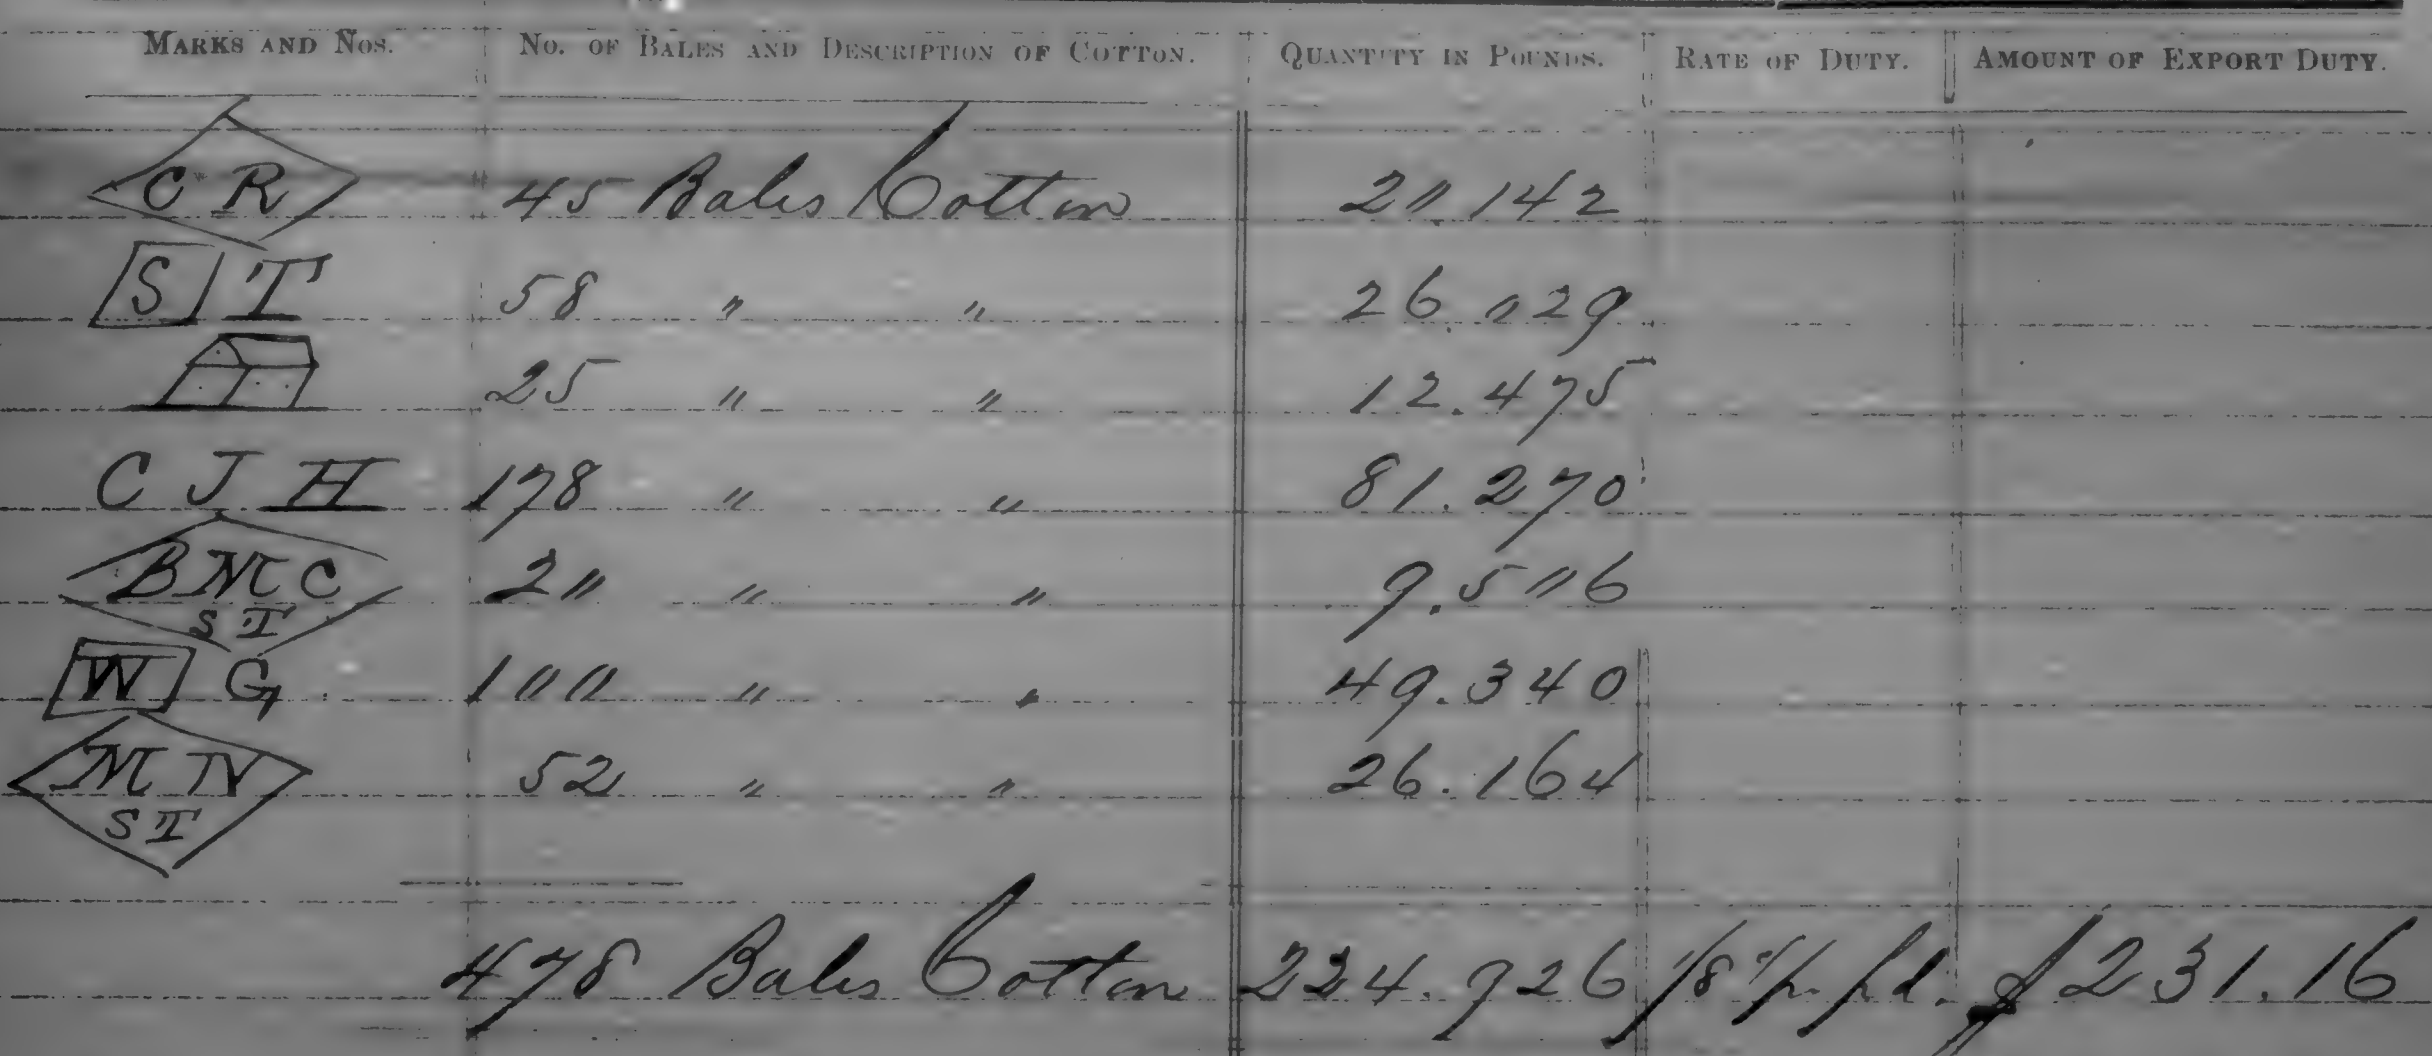 MARKS AND NOS. NO. OF BALES AND DESCRIPTION OF COTTON. QUANTITY IN POUNDS. RATE OF DUTY. AMOUNT OF EXPORT DUTY.
C R 45 Bales Cotton 20.142
S T 58 " " 26.029
25 " " 12.475
C J H 178 " " 81.270
B M C 20 " " 9.506
S T
W G 100 " " 49.340
M N 52 " " 26.164
S T
478 Bales Cotton 224.926 1/8 pd. $231.16